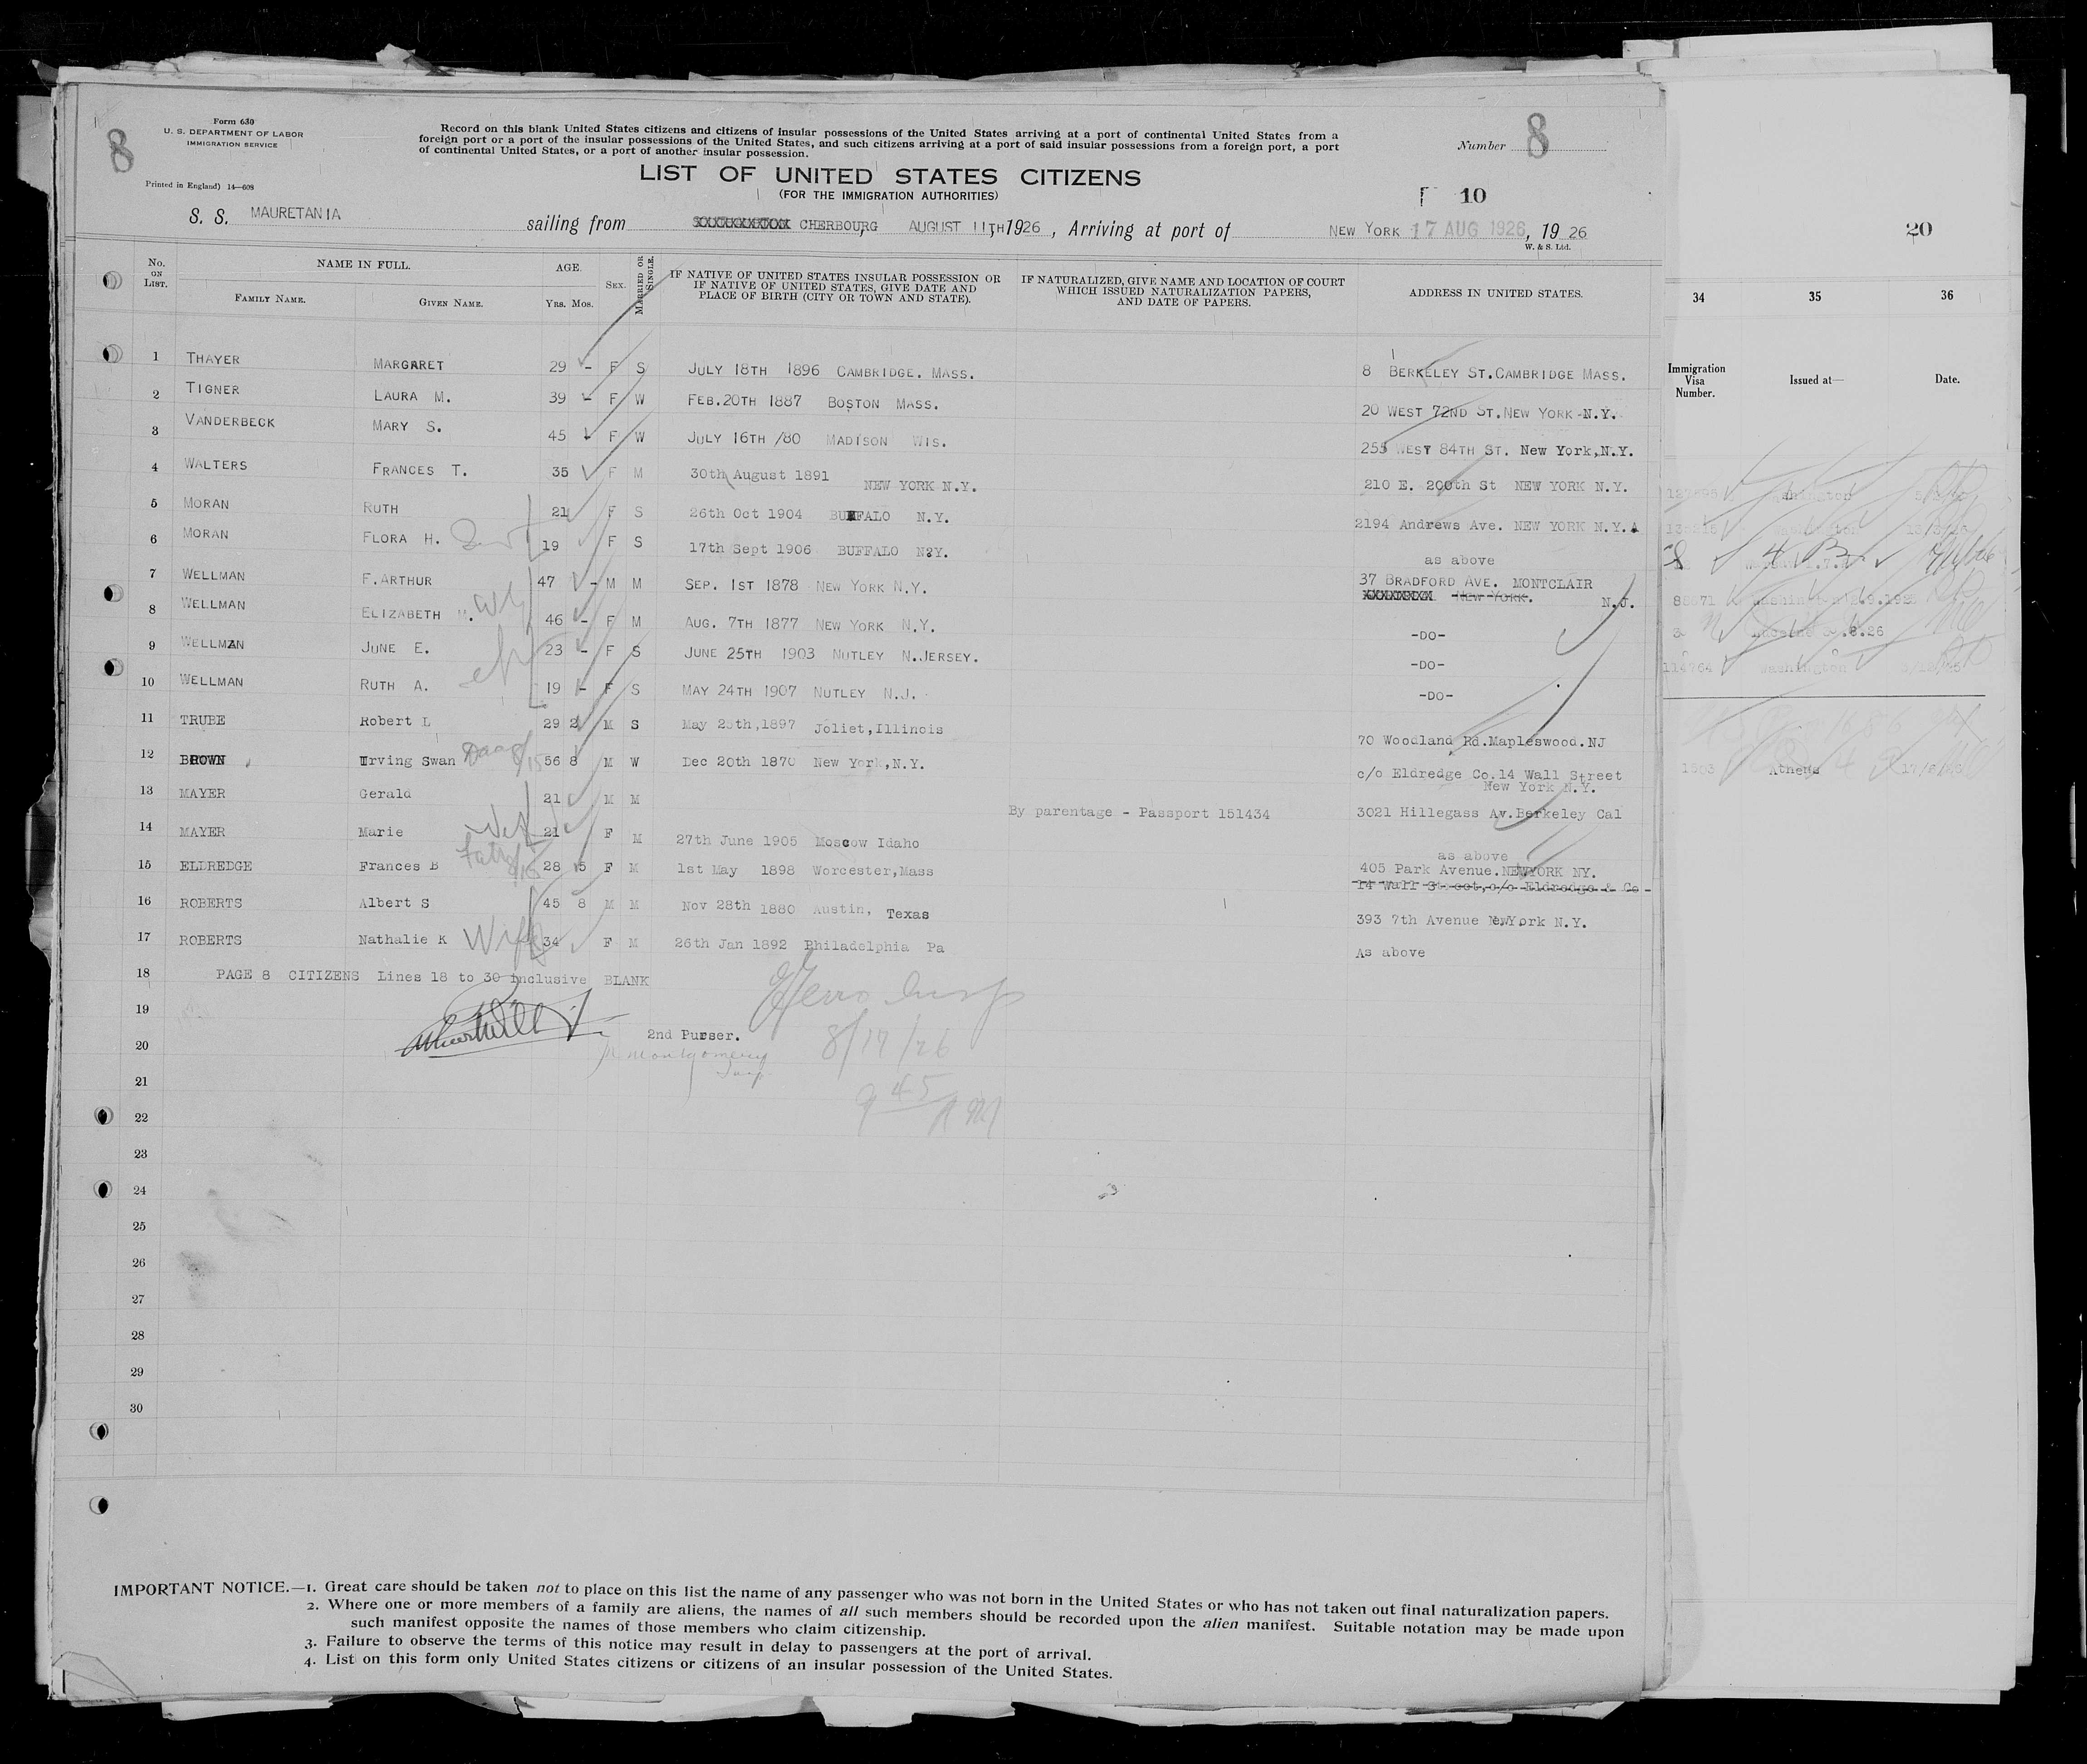 8
Form 630
U. S. DEPARTMENT OF LABOR
IMMIGRATION SERVICE
Printed in England) 14—608
Record on this blank United States citizens and citizens of insular possessions of the United States arriving at a port of continental United States from a
foreign port or a port of the insular possessions of the United States, and such citizens arriving at a port of said insular possessions from a foreign port, a port
of continental United States, or a port of another insular possession.
Number 8
LIST OF UNITED STATES CITIZENS
(FOR THE IMMIGRATION AUTHORITIES)
10
20
S. S. MAURETANIA sailing from CHERBOURG AUGUST 11TH 1926, Arriving at port of NEW YORK 17 AUG 1926, 19 26
W. & S. Ltd.
No. ON LIST. NAME IN FULL. FAMILY NAME. GIVEN NAME. AGE. Yrs. Mos. SEX. MARRIED OR SINGLE.
IF NATIVE OF UNITED STATES INSULAR POSSESSION OR
IF NATIVE OF UNITED STATES, GIVE DATE AND
PLACE OF BIRTH (CITY OR TOWN AND STATE).
IF NATURALIZED, GIVE NAME AND LOCATION OF COURT
WHICH ISSUED NATURALIZATION PAPERS,
AND DATE OF PAPERS.
ADDRESS IN UNITED STATES.
34 35 36
Immigration Visa Number. Issued at— Date.
1 THAYER MARGARET 29 - F S JULY 18TH 1896 CAMBRIDGE. MASS. 8 BERKELEY ST. CAMBRIDGE MASS.
2 TIGNER LAURA M. 39 - F W FEB. 20TH 1887 BOSTON MASS. 20 WEST 72ND ST. NEW YORK N.Y.
3 VANDERBECK MARY S. 45 - F W JULY 16TH /80 MADISON WIS. 255 WEST 84TH ST. New York, N.Y.
4 WALTERS FRANCES T. 35 F M 30th August 1891 NEW YORK N.Y. 210 E. 200th St NEW YORK N.Y.
5 MORAN RUTH 21 F S 26th Oct 1904 BUFFALO N.Y. 2194 Andrews Ave. NEW YORK N.Y.
6 MORAN FLORA H. 19 F S 17th Sept 1906 BUFFALO N.Y. as above
7 WELLMAN F. ARTHUR 47 - M M SEP. 1ST 1878 NEW YORK N.Y. 37 BRADFORD AVE. MONTCLAIR
NEW YORK. N.J.
8 WELLMAN ELIZABETH M. 46 - F M AUG. 7TH 1877 NEW YORK N.Y. -DO-
9 WELLMAN JUNE E. 23 - F S JUNE 25TH 1903 NUTLEY N.JERSEY. -DO-
10 WELLMAN RUTH A. 19 - F S MAY 24TH 1907 NUTLEY N.J. -DO-
11 TRUBE Robert L 29 2 M S May 25th, 1897 Joliet, Illinois 70 Woodland Rd. Mapleswood. NJ
12 BROWN Irving Swan 56 8 M W Dec 20th 1870 New York, N.Y. c/o Eldredge Co. 14 Wall Street
New York N.Y.
13 MAYER Gerald 21 M M By parentage - Passport 151434 3021 Hillegass Av. Berkeley Cal
14 MAYER Marie 21 F M 27th June 1905 Moscow Idaho as above
15 ELDREDGE Frances B 28 5 F M 1st May 1898 Worcester, Mass 405 Park Avenue. NEWYORK NY.
14 Wall Street, c/o Eldredge & Co
16 ROBERTS Albert S 45 8 M M Nov 28th 1880 Austin, Texas 393 7th Avenue New York N.Y.
17 ROBERTS Nathalie K Wife 34 F M 26th Jan 1892 Philadelphia Pa As above
18 PAGE 8 CITIZENS Lines 18 to 30 inclusive BLANK
19
2nd Purser.
20
Montgomery
Insp
8/17/26
21
9 45 AM
22
23
24
25
26
27
28
29
30
Athens
IMPORTANT NOTICE.—1. Great care should be taken not to place on this list the name of any passenger who was not born in the United States or who has not taken out final naturalization papers.
2. Where one or more members of a family are aliens, the names of all such members should be recorded upon the alien manifest. Suitable notation may be made upon
such manifest opposite the names of those members who claim citizenship.
3. Failure to observe the terms of this notice may result in delay to passengers at the port of arrival.
4. List on this form only United States citizens or citizens of an insular possession of the United States.